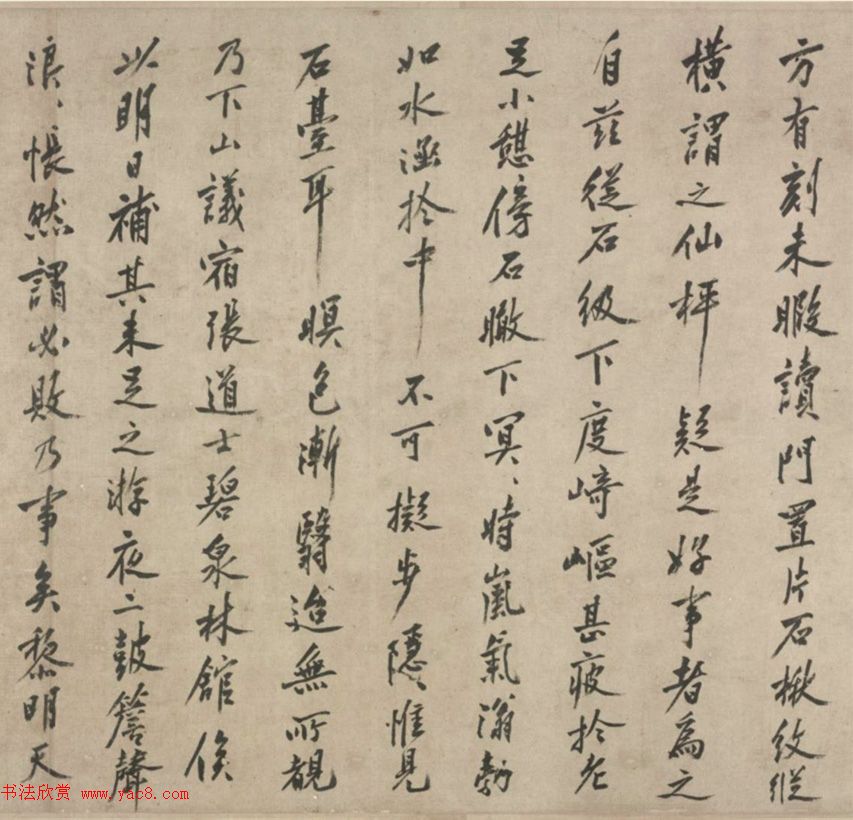 方有刻未暇讀門置片石楸紋縱
橫謂之仙枰疑是好事者為之
自茲從石級下度崎嶇甚疲於
足小憩傍石瞰下冥〻時嵐氣滃勃
如水涵於中不可擬步隱〻惟見
石臺耳暝色漸翳迨無所覩
乃下山議宿張道士碧泉林館俟
以明日補其未足之游夜二鼓簷聲
浪〻悵然謂必敗乃事矣黎明天
书法欣赏 www.yac8.com